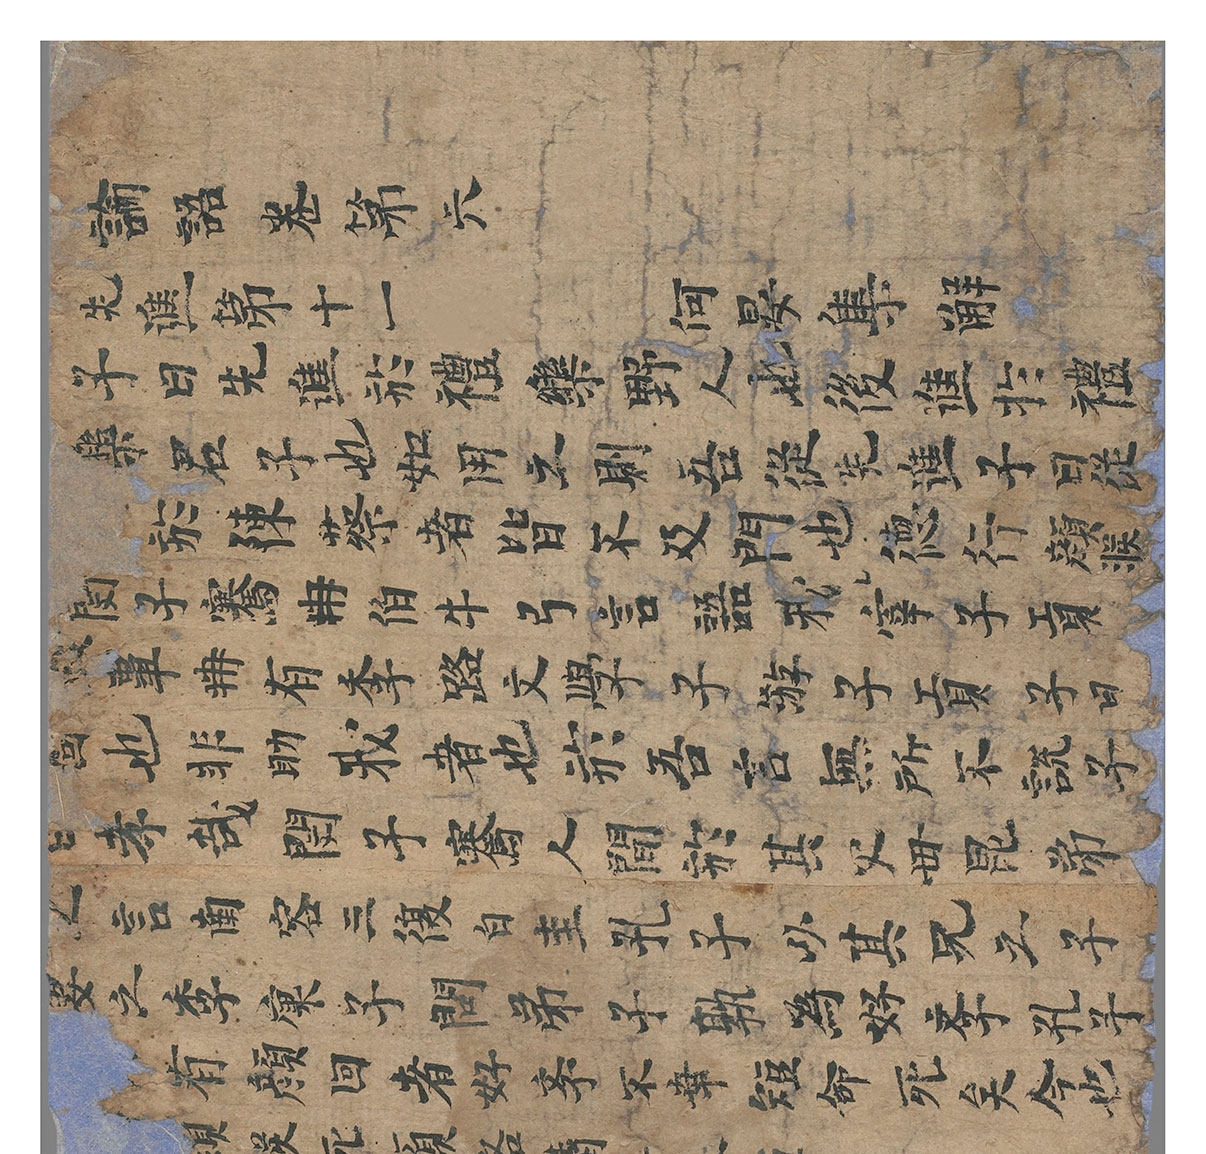 論語卷第六
先進第十一 何晏集解
子曰先進於禮樂野人也後進於禮
樂君子也如用之則吾從先進子曰從
於陳蔡者皆不及門也德行顏淵
閔子騫冉伯牛弓言語我宰子貢
事冉有季路文學子游子貢子曰
回也非助我者也於吾言無所不說子
曰孝哉閔子騫人閒於其父母昆弟
之言南容三復白圭孔子以其兄之子
妻之季康子問弟子孰爲好學孔子
有顏回者好學不幸短命死矣今也
死顏路